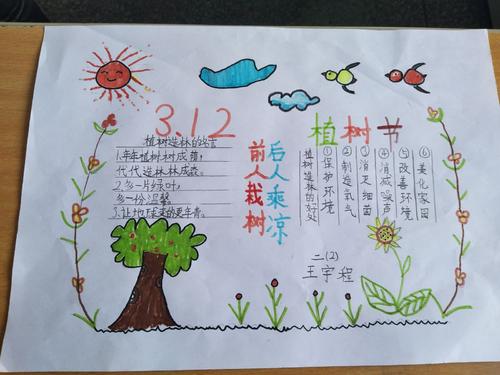 3.12
植树节
植树造林的名言
1.年年植树树成荫,
代代造林林成森。
2.多一片绿叶,
多一份温馨。
3.让地球变的更年青。
前人栽树
后人乘凉
植树造林的好处
①保护环境
②制造氧气
③消灭细菌
④消减噪声
⑤改善环境
⑥美化家园
二(2)
王宇程